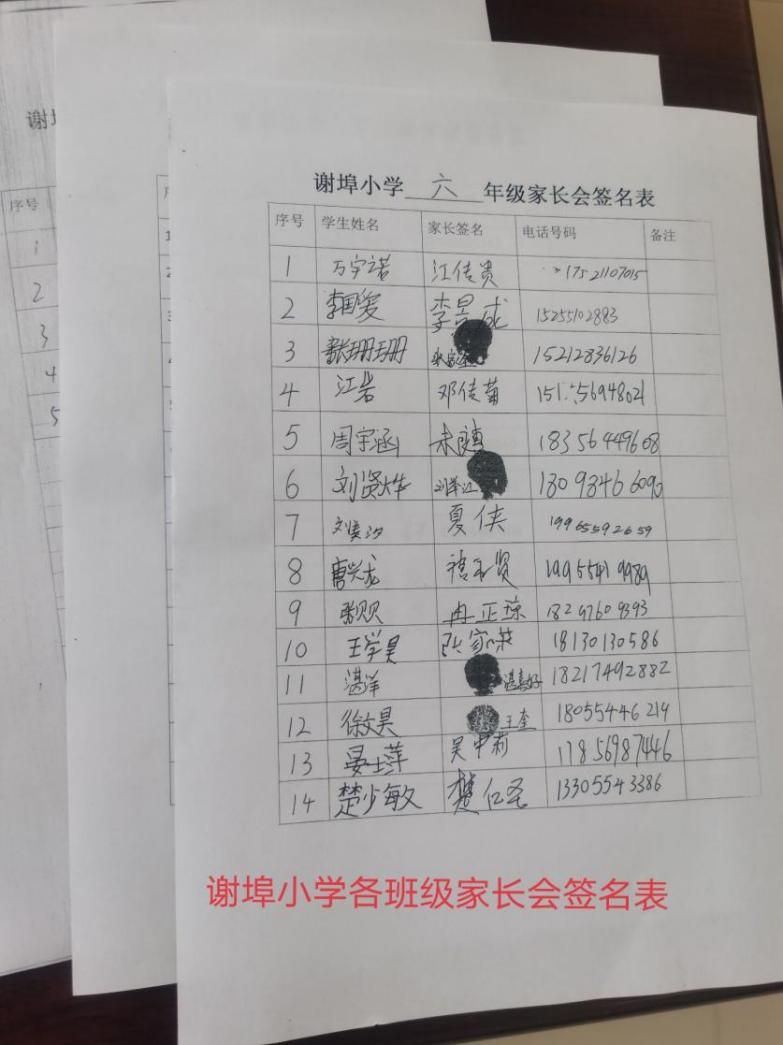 谢埠小学 六 年级家长会签名表
序号 学生姓名 家长签名 电话号码 备注
1 万宇诺 江传贵 17521107015
2 李国爱 李景成 15255102883
3 张珊珊 15212836126
4 江岩 邓传菊
5 周宇涵 18356449608
6 刘贤烨 刘学江 18098466090
7 夏侠 19965592659
8 唐兴龙
9 冉正琼 18297609393
10 王学昊 张家荣 18130130586
11 湛洋 18217492882
12 徐文昊 王奎 18055446219
13 晏士萍 吴中莉 11856987446
14 楚少敏 楚仁圣 13305543386
谢埠小学各班级家长会签名表
序号
1
2
3
4
5